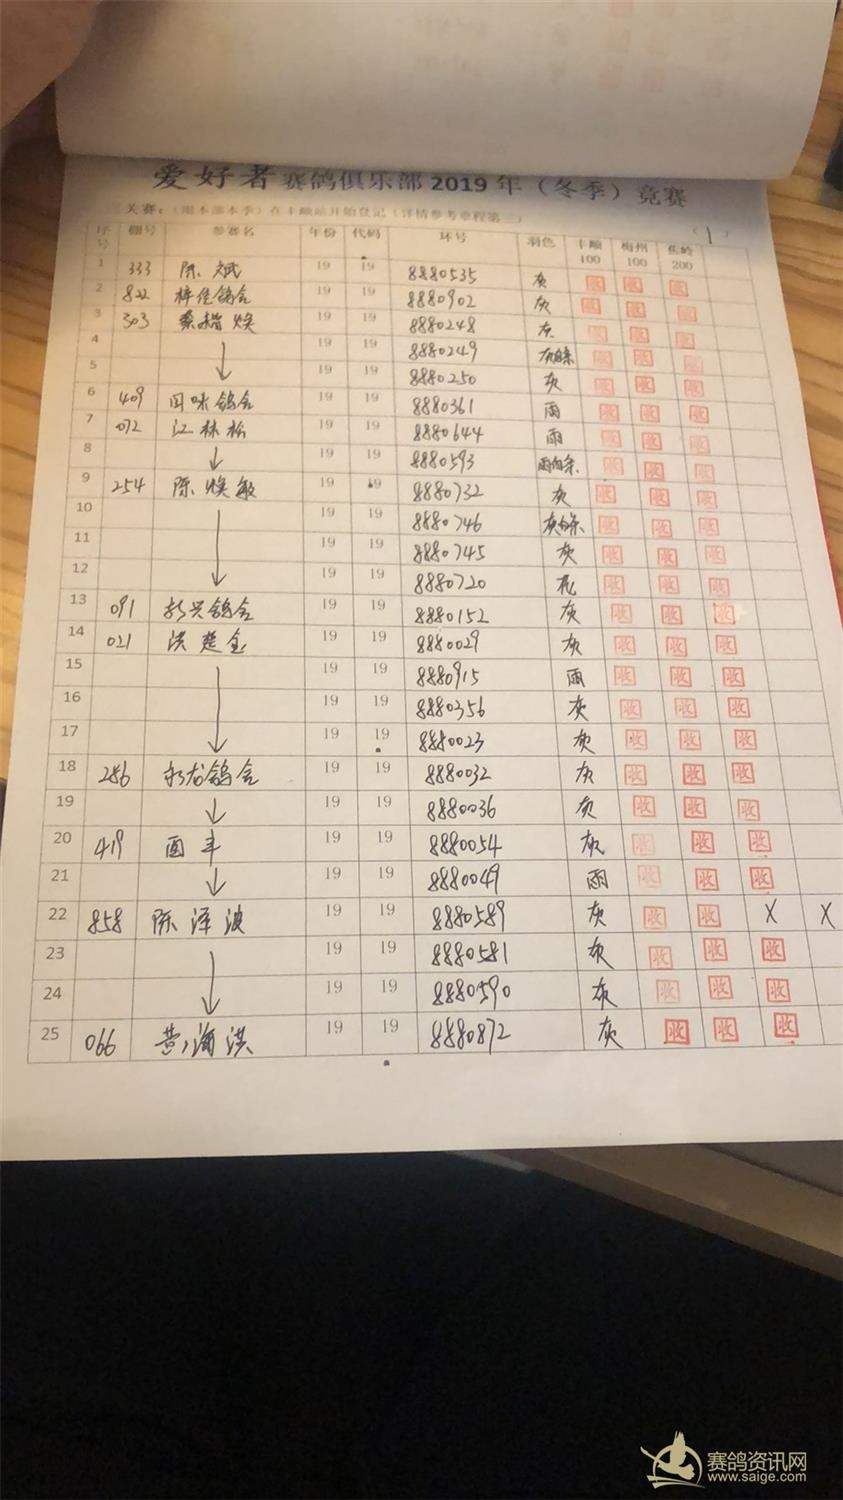 爱好者赛鸽俱乐部2019年（冬季）竞赛
关赛：（限本部本季）在丰顺站开始登记（详情参考章程第三） （1）
序号 棚号 参赛名 年份 代码 环号 羽色 丰顺100 梅州100 蕉岭200
1 333 陈斌 19 19 8880535 灰 收 收 收
2 822 梓佳鸽舍 19 19 8880902 灰 收 收 收
3 303 焕 19 19 8880248 灰 收 收 收
4 19 19 8880249 灰白条 收 收 收
5 19 19 8880250 灰 收 收 收
6 409 回味鸽舍 19 19 8880361 雨 收 收 收
7 072 江林松 19 19 8880644 雨 收 收 收
8 19 19 8880593 雨白条 收 收 收
9 254 陈焕敏 19 19 8880732 灰 收 收 收
10 19 19 8880746 灰白条 收 收 收
11 19 19 8880745 灰 收 收 收
12 19 19 8880720 花 收 收 收
13 091 新兴鸽舍 19 19 8880152 灰 收 收 收
14 021 洪楚金 19 19 8880029 灰 收 收 收
15 19 19 8880915 雨 收 收 收
16 19 19 8880356 灰 收 收 收
17 19 19 8880023 灰 收 收 收
18 286 鸽舍 19 19 8880032 灰 收 收 收
19 19 19 8880036 灰 收 收 收
20 419 丰 19 19 8880054 灰 收 收 收
21 19 19 8880049 雨 收 收 收
22 858 陈泽波 19 19 8880589 灰 收 收 X X
23 19 19 8880581 灰 收 收 收
24 19 19 8880590 灰 收 收 收
25 066 黄海洪 19 19 8880872 灰 收 收 收
赛鸽资讯网
www.saige.com